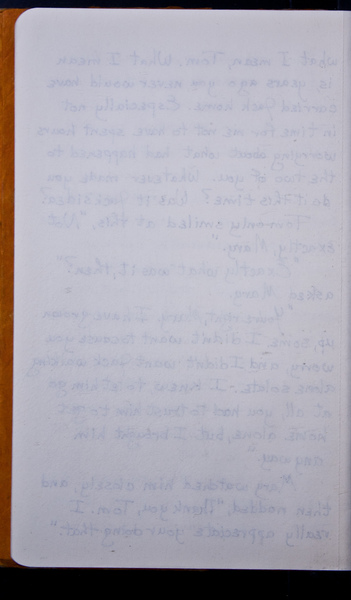 what I mean, Tom. What I mean
is years ago you never would have
carried Jack home. Especially not
in time for me not to have spent hours
worrying about what had happened to
the two of you. Whatever made you
do it this time? Was it incidental?
Tom only smiled at this, "Not
exactly, Mary."
"Exactly what was it, then?"
asked Mary.
Mary, I have grown
up, some. I didn't want to cause you
worry, and I didn't want Jack walking
I knew to let him go
at all, you had to trust him to get
home alone, but I brought him
anyway."
Mary watched him closely, and
then nodded, "Thank you, Tom. I
really appreciate your doing that."